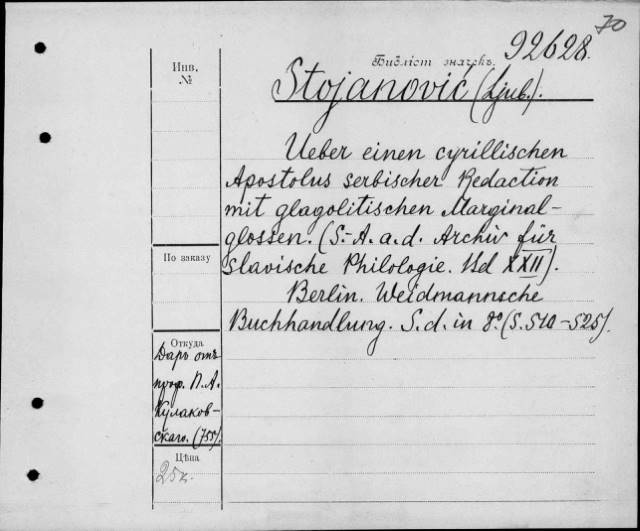 70
92628.
Библіот. значекъ.
Инв.
№
Stojanović (Ljub.).
Ueber einen cyrillischen
Apostolus serbischer Redaction
mit glagolitischen Marginal-
glossen. (S.-A. a. d. Archiv für
slavische Philologie. Bd XXII).
Berlin. Weidmannsche
Buchhandlung. S. d. in 8º (S. 510-525).
По заказу
Откуда
Даръ отъ
проф. П. А.
Кулаков-
скаго. (755).
Цѣна
25к.